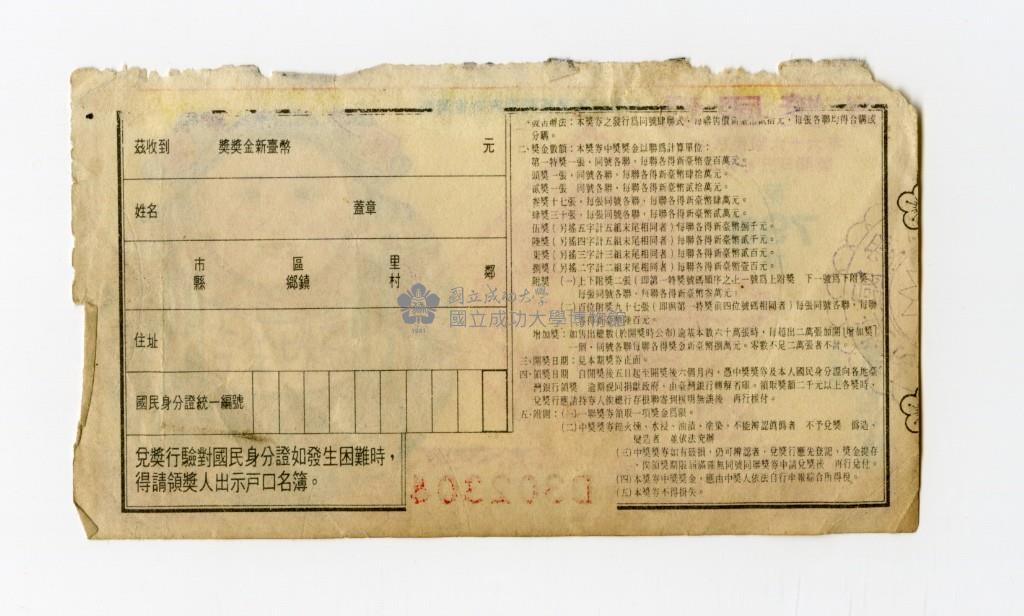 茲收到 獎獎金新臺幣 元
姓名 蓋章
市 區 里 鄰
縣 鄉鎮 村
住址
國民身分證統一編號
兌獎行驗對國民身分證如發生困難時，
得請領獎人出示戶口名簿。
辦法：本獎券之發行爲同號肆聯式，每聯售價新臺幣 拾元，每張各聯均得合購或
分購。
二、獎金數額：本獎券中獎獎金以聯爲計算單位：
第一特獎一張，同號各聯，每聯各得新臺幣壹百萬元。
頭獎一張，同號各聯，每聯各得新臺幣肆拾萬元。
貳獎一張 同號各聯，每聯各得新臺幣貳拾萬元。
叁獎十七張，每張同號各聯，每聯各得新臺幣肆萬元。
肆獎三十張，每張同號各聯，每聯各得新臺幣貳萬元。
伍獎（另搖五字計五組末尾相同者）每聯各得新臺幣捌千元。
陸獎（另搖四字計五組末尾相同者）每聯各得新臺幣貳千元。
柒獎（另搖三字計三組末尾相同者）每聯各得新臺幣貳百元。
捌獎（另搖二字計二組末尾相同者）每聯各得新臺幣壹百元。
附獎（一）上下附獎二張（即第一特獎號碼順序之上一號爲上附獎 下一號爲下附獎）
每張同號各聯，每聯各得新臺幣叁萬元。
（二）百位附獎九十七張（即與第一特獎前四位號碼相同者）每張同號各聯，每聯
百元。
增加獎：如售出總數(於開獎時公布)逾基本數六十萬張時，每超出二萬張加開「增加獎」
一個，同號各聯每聯各得獎金新臺幣捌萬元。零數不足二萬張者不計。
三、開獎日期：見本期獎券正面。
四、領獎日期 自開獎後五日起至開獎後六個月內，憑中獎獎券及本人國民身分證向各地臺
灣銀行領獎 逾期視同捐獻政府，由臺灣銀行轉解省庫。領取獎額二千元以上各獎時，
兌獎行應請持券人俟總行存根聯寄到核明無誤後 再行核付。
五、附則：（一）一聯獎券領取一項獎金爲限。
（二）中獎獎券經火燻、水浸、油漬、塗染，不能辨認眞僞者 不予兌獎 僞造、
變造者 並依法究辦
（三）中獎獎券如有破損，仍可辨認者，兌獎行應先登記，獎金提存
、俟領獎期限屆滿確無同號同聯獎券申請兌獎後 再行兌付。
（四）本獎券中獎獎金，應由中獎人依法自行申報綜合所得稅。
（五）本獎券不得掛失。
國立成功大學
國立成功大學博物館
1931